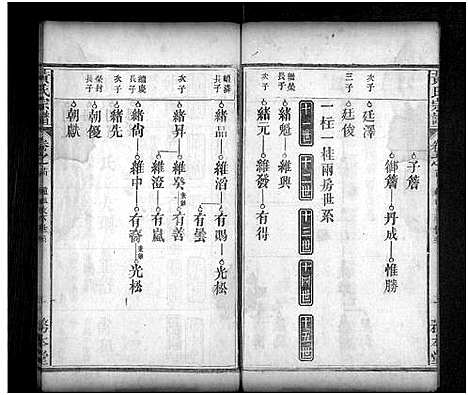 黃氏宗譜
卷之首
務本堂
子詹 丹成 惟勝
廷澤
次子
廷俊
三子
一柱一桂兩房世系
十一世 十二世 十三世 十四世 十五世
緒魁 維興
繼榮長子
緒元 維發 有得
次子
緒品 維滔 有賜 光松
長子
有曇
緒昇 維癸 有善
次子
維澄 有嵐
緒尚 維中 有裔 光松
繼慶長子
緒先
次子
朝優
榮封長子
朝獻
黃氏宗譜
卷之首